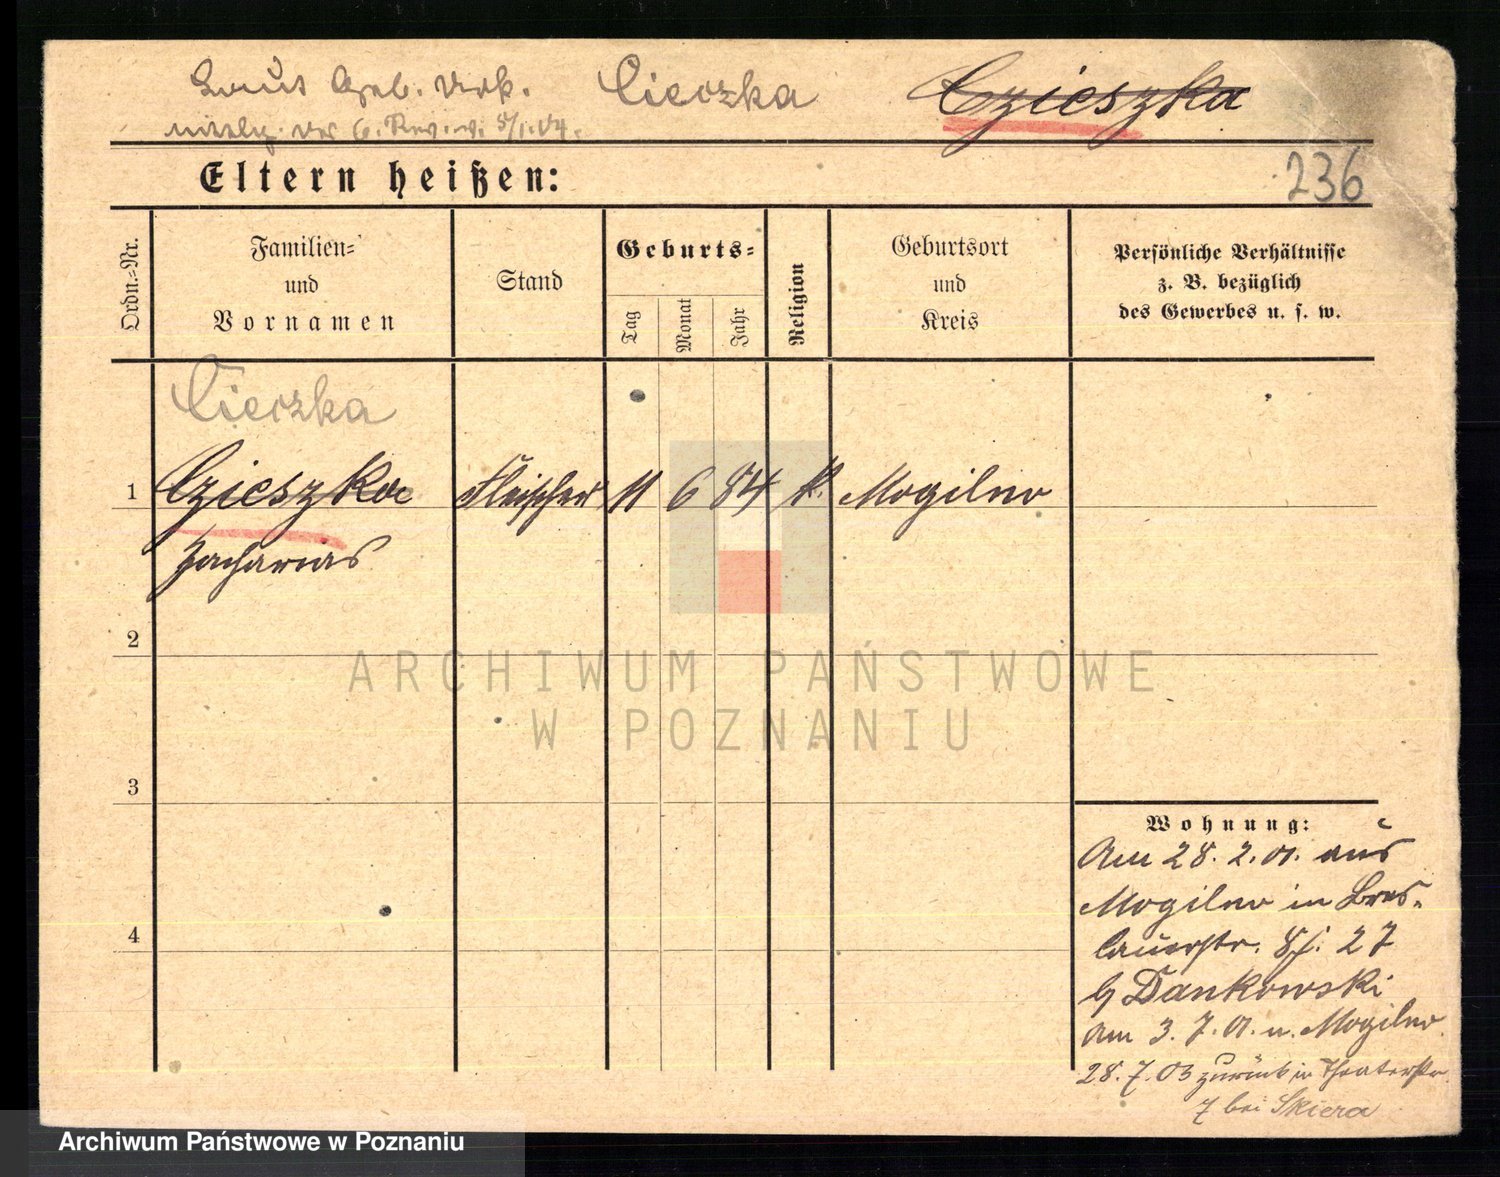 Laut Geb. Urk. Cieczka Czieszka
v. 5/1.04.
Eltern heißen:
236
Ordn.-Nr.
Familien-
und
Vornamen
Stand
Geburts-
Tag
Monat
Jahr
Religion
Geburtsort
und
Kreis
Persönliche Verhältnisse
z. B. bezüglich
des Gewerbes u. s. w.
Cieczka
1 Czieszka Fleischer 11 6 84 k. Mogilno
Zacharias
2
3
4
Wohnung:
Am 28. 2. 01. aus
Mogilno in Bres-
lauerstr. 27
b Dankowski
am 3. 7. 01. n. Mogilno
28. 7. 03 zurück in Theaterstr.
7 bei Skiera
ARCHIWUM PAŃSTWOWE
W POZNANIU
Archiwum Państwowe w Poznaniu